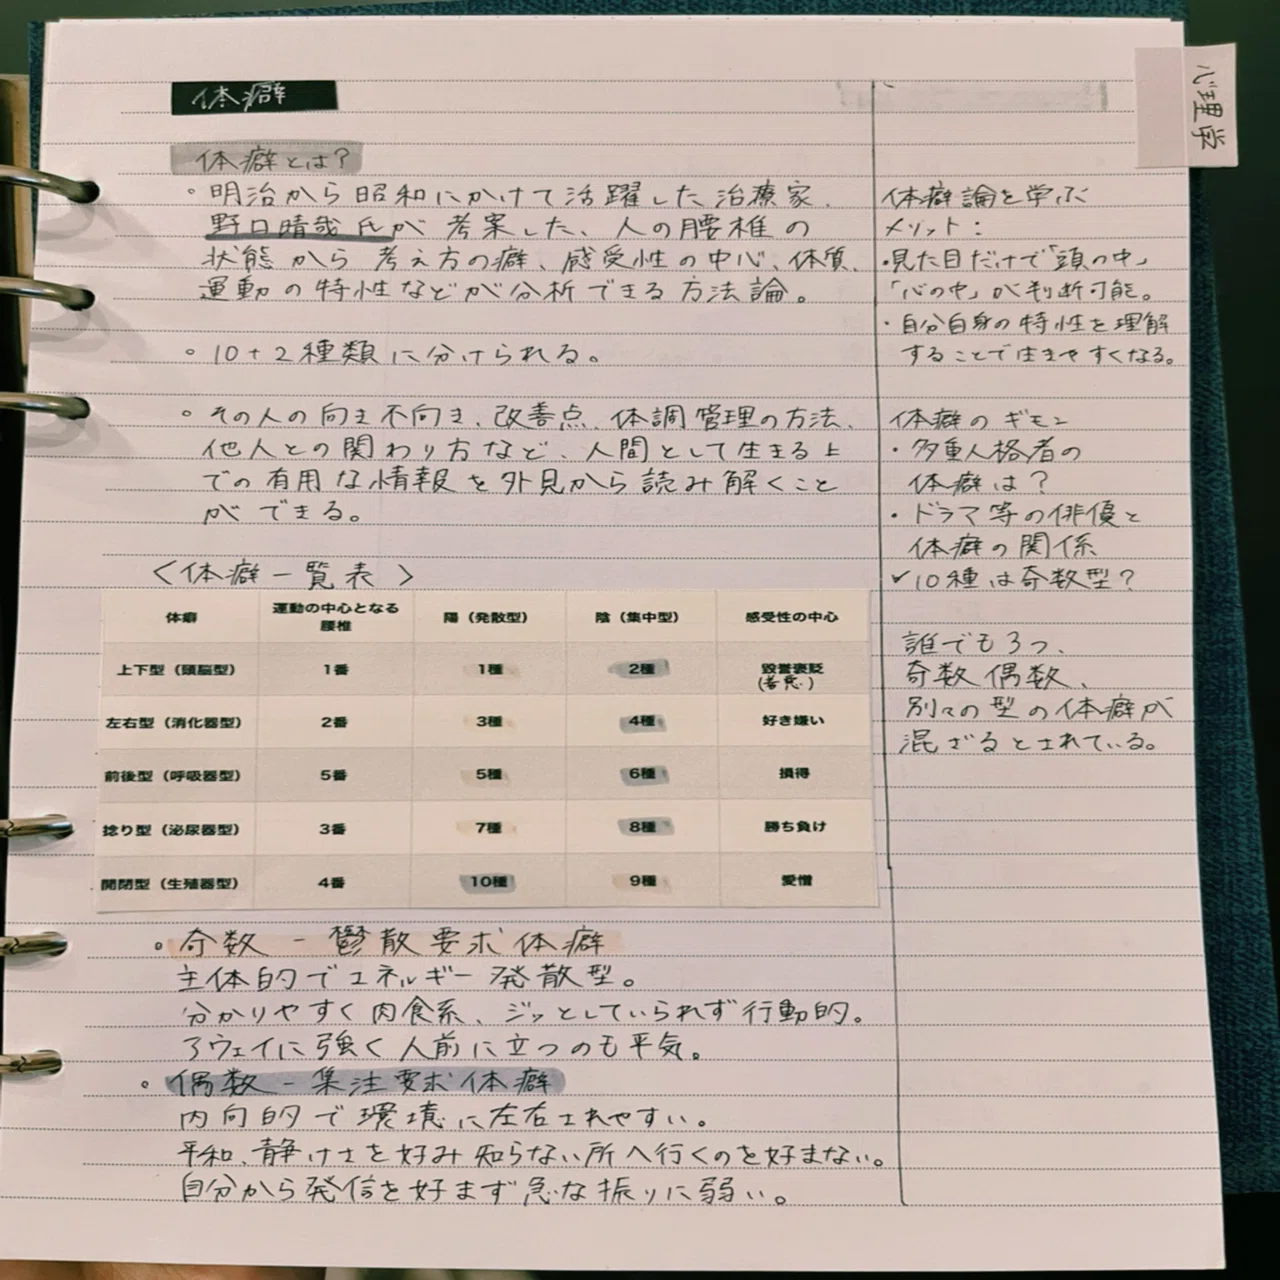 心理学
体癖
体癖とは?
・明治から昭和にかけて活躍した治療家、
野口晴哉氏が考案した、人の腰椎の
状態から考え方の癖、感受性の中心、体質、
運動の特性などが分析できる方法論。
・10+2種類に分けられる。
・その人の向き不向き、改善点、体調管理の方法、
他人との関わり方など、人間として生きる上
での有用な情報を外見から読み解くこと
ができる。
<体癖一覧表>
体癖 運動の中心となる腰椎 陽(発散型) 陰(集中型) 感受性の中心
上下型(頭脳型) 1番 1種 2種 毀誉褒貶
(善悪)
左右型(消化器型) 2番 3種 4種 好き嫌い
前後型(呼吸器型) 5番 5種 6種 損得
捻り型(泌尿器型) 3番 7種 8種 勝ち負け
開閉型(生殖器型) 4番 10種 9種 愛憎
・奇数-鬱散要求体癖
主体的でエネルギー発散型。
分かりやすく肉食系、ジッとしていられず行動的。
アウェイに強く人前に立つのも平気。
・偶数-集注要求体癖
内向的で環境に左右されやすい。
平和、静けさを好み知らない所へ行くのを好まない。
自分から発信を好まず急な振りに弱い。
体癖論を学ぶ
メリット:
・見た目だけで「頭の中」
「心の中」が判断可能。
・自分自身の特性を理解
することで生きやすくなる。
体癖のギモン
・多重人格者の
体癖は?
・ドラマ等の俳優と
体癖の関係
✓10種は奇数型?
誰でも3つ、
奇数偶数、
別々の型の体癖が
混ざるとされている。